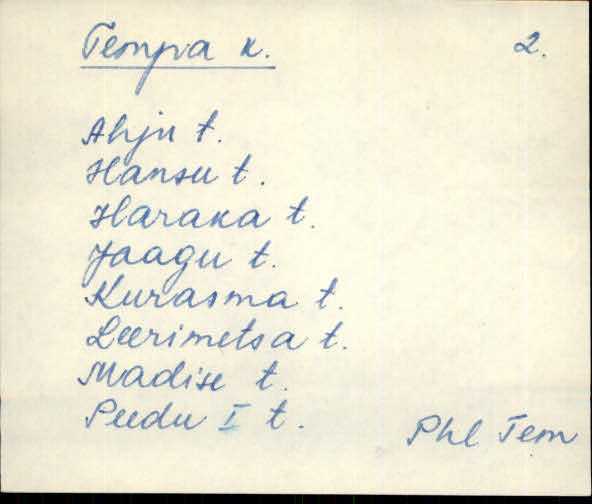 Tempa k. 2.
Ahju t.
Hansu t.
Haraka t.
Jaagu t.
Kurasma t.
Leerimetsa t.
Madise t.
Peedu I t.
Phl Tem